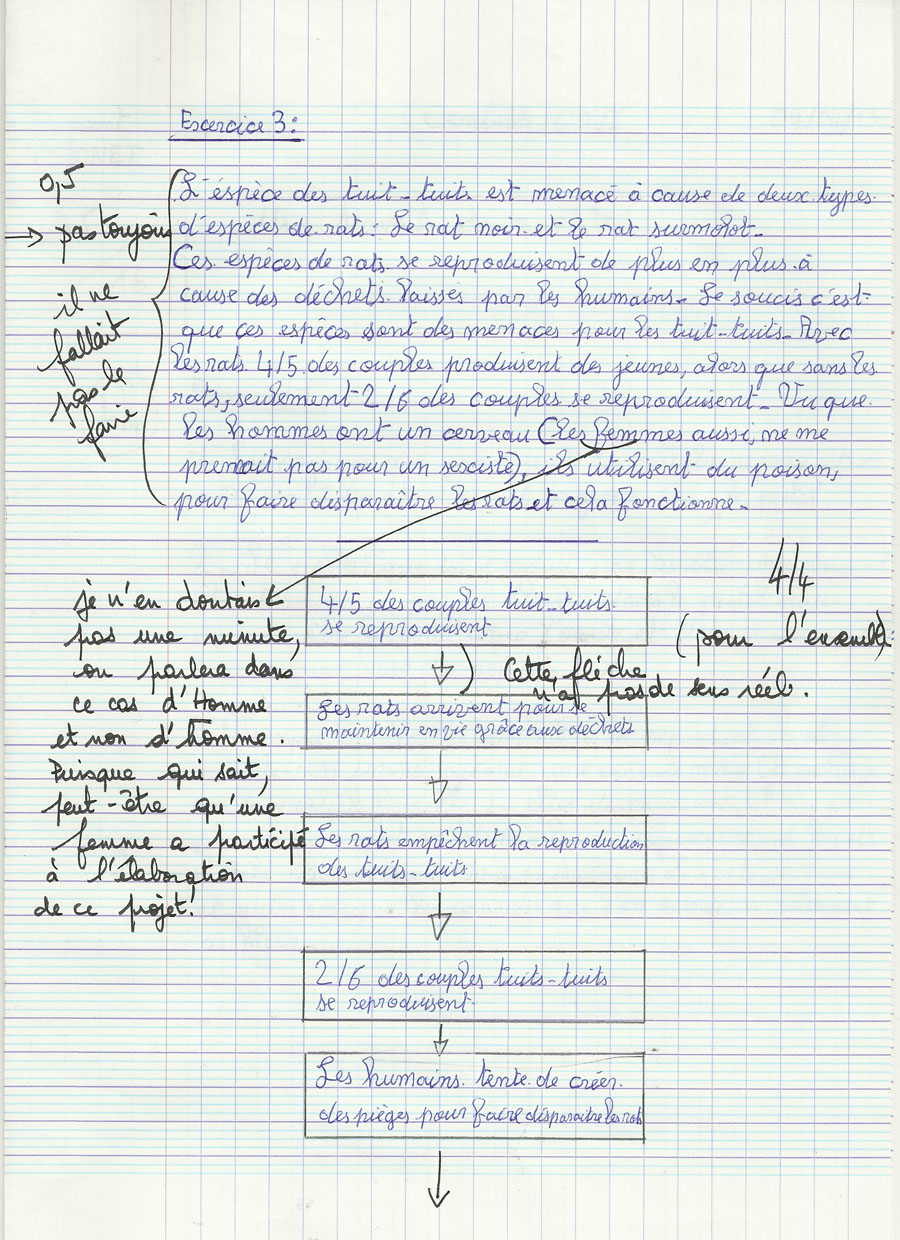 Exercice 3:
0,5
L'éspèce des tuit-tuits est menacé à cause de deux types
→ pas toujours
d'espèces de rats: Le rat noir et le rat surmolot.
Ces espèces de rats se reproduisent de plus en plus à
cause des déchets laissés par les humains. Le soucis c'est
que ces espèces sont des menaces pour les tuit-tuits. Avec
les rats 4/5 des couples produisent des jeunes, alors que sans les
rats, seulement 2/6 des couples se reproduisent. Vu que
les hommes ont un cerveau (les femmes aussi, ne me
prennait pas pour un sexiste), ils utilisent du poison,
pour faire disparaître les rats et cela fonctionne.
il ne
fallait
pas le
faire
4/4
(pour l'ensemble)
je n'en doutais
pas une minute,
on parlera dans
ce cas d'Homme
et non d'homme.
Puisque qui sait,
peut-être qu'une
femme a participé
à l'élaboration
de ce projet!
4/5 des couples tuit-tuits
se reproduisent
Cette flèche
n'a pas de sens réel.
Les rats arrivent pour se
maintenir en vie grâce aux déchets
Les rats empêchent la reproduction
des tuits-tuits
2/6 des couples tuits-tuits
se reproduisent
Les humains tente de créer
des pièges pour faire disparaitre les rats